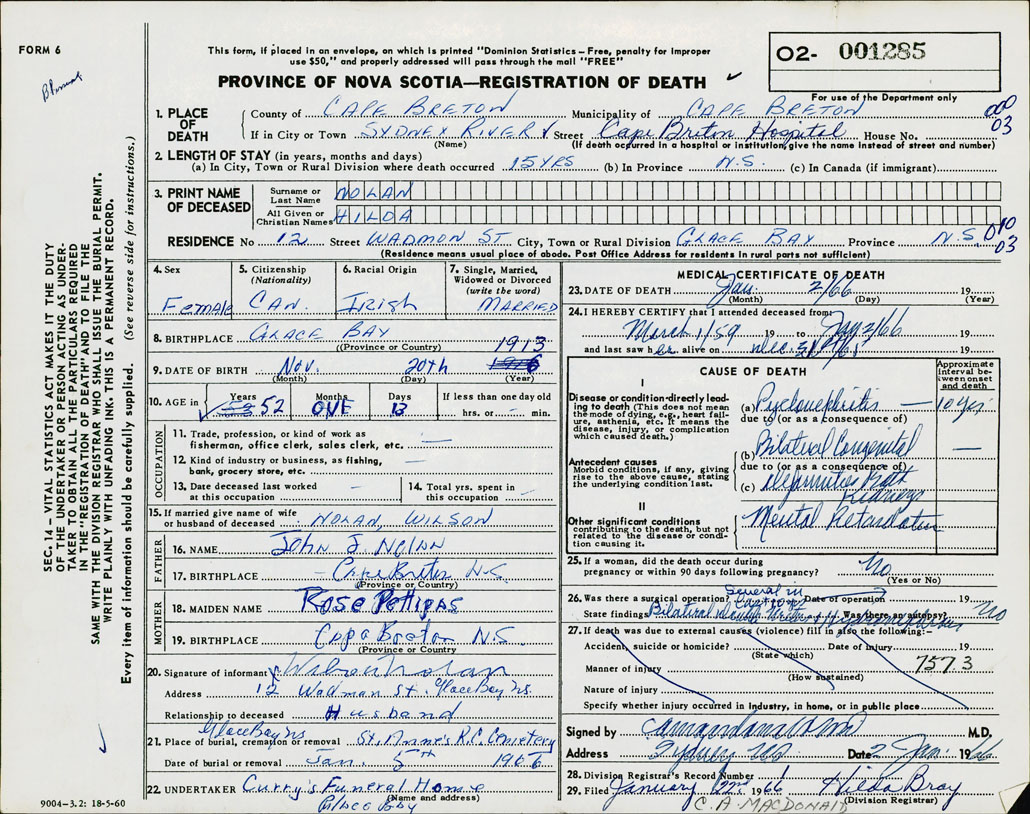 FORM 6
This form, if placed in an envelope, on which is printed "Dominion Statistics – Free, penalty for improper
use $50," and properly addressed will pass through the mail "FREE"
PROVINCE OF NOVA SCOTIA—REGISTRATION OF DEATH
02- 001285
For use of the Department only
1. PLACE OF DEATH
County of CAPE BRETON Municipality of CAPE BRETON 000
If in City or Town SYDNEY RIVER Street Cape Breton Hospital House No. 03
(Name) (If death occurred in a hospital or institution, give the name instead of street and number)
2. LENGTH OF STAY (in years, months and days)
(a) In City, Town or Rural Division where death occurred 15 YRS (b) In Province N.S. (c) In Canada (if immigrant)
3. PRINT NAME OF DECEASED
Surname or Last Name NOLAN
All Given or Christian Names HILDA
RESIDENCE No 12 Street WADMON ST City, Town or Rural Division GLACE BAY Province N.S. 010 03
(Residence means usual place of abode. Post Office Address for residents in rural parts not sufficient)
4. Sex Female
5. Citizenship (Nationality) CAN.
6. Racial Origin IRISH
7. Single, Married, Widowed or Divorced (write the word) MARRIED
8. BIRTHPLACE GLACE BAY
(Province or Country)
9. DATE OF BIRTH Nov. 20th 1913
(Month) (Day) (Year)
10. AGE in Years 52 Months ONE Days 13 If less than one day old hrs. or min.
OCCUPATION
11. Trade, profession, or kind of work as fisherman, office clerk, sales clerk, etc. —
12. Kind of industry or business, as fishing, bank, grocery store, etc. —
13. Date deceased last worked at this occupation –
14. Total yrs. spent in this occupation –
15. If married give name of wife or husband of deceased NOLAN, WILSON
FATHER
16. NAME John J NOLAN
17. BIRTHPLACE Cape Breton N.S.
(Province or Country)
MOTHER
18. MAIDEN NAME Rose Pettipas
19. BIRTHPLACE Cape Breton N.S
(Province or Country)
20. Signature of informant Wilson Nolan
Address 12 Wadman St. Glace Bay NS.
Relationship to deceased Husband
Glace Bay NS
21. Place of burial, cremation or removal St. Anne's R.C. Cemetery
Date of burial or removal Jan. 5th 1966
22. UNDERTAKER Curry's Funeral Home
(Name and address)
Glace Bay
MEDICAL CERTIFICATE OF DEATH
23. DATE OF DEATH Jan. 2/66 19
(Month) (Day) (Year)
24. I HEREBY CERTIFY that I attended deceased from:
March 1/59 19 to Jan 2/66
and last saw her alive on Dec. 31st 19
CAUSE OF DEATH
Approximate interval between onset and death
I
Disease or condition directly leading to death (This does not mean the mode of dying, e.g., heart failure, asthenia, etc. It means the disease, injury, or complication which caused death.)
(a) Pyelonephritis — 10 yrs
due to (or as a consequence of)
(b) Bilateral Congenital —
Antecedent causes
Morbid conditions, if any, giving rise to the above cause, stating the underlying condition last.
due to (or as a consequence of)
(c) deformities Both
Kidneys
II
Other significant conditions
contributing to the death, but not related to the disease or condition causing it.
Mental Retardation
25. If a woman, did the death occur during pregnancy or within 90 days following pregnancy? No
(Yes or No)
26. Was there a surgical operation? Several in Date of operation 19
State findings Bilateral double Was there an autopsy? No
27. If death was due to external causes (violence) fill in also the following:–
Accident, suicide or homicide? Date of injury 19
(State which)
Manner of injury 757.3
(How sustained)
Nature of injury
Specify whether injury occurred in industry, in home, or in public place
Signed by M.D.
Address Sydney NS Date 2 Jan. 1966
28. Division Registrar's Record Number 1
29. Filed January 22nd 1966 Hilda Bray
(Division Registrar)
C. A. MACDONALD
SEC. 14 – VITAL STATISTICS ACT MAKES IT THE DUTY
OF THE UNDERTAKER OR PERSON ACTING AS UNDER-
TAKER TO OBTAIN ALL THE PARTICULARS REQUIRED
IN THE "REGISTRATION OF DEATH" AND TO FILE THE
SAME WITH THE DIVISION REGISTRAR WHO SHALL ISSUE THE BURIAL PERMIT.
WRITE PLAINLY WITH UNFADING INK. THIS IS A PERMANENT RECORD.
Every item of information should be carefully supplied. (See reverse side for instructions.)
9004–3.2: 18-5-60